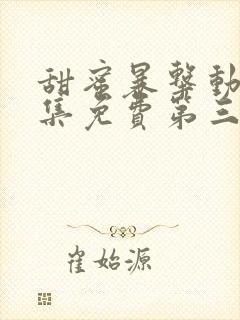 甜蜜暴擊動
集免費第三
崔始源